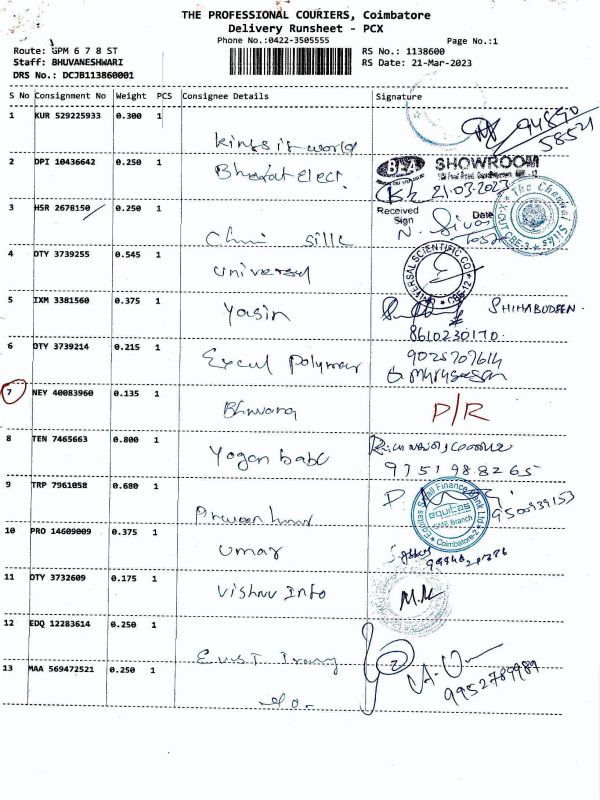 THE PROFESSIONAL COURIERS, Coimbatore
Delivery Runsheet - PCX
Phone No.:0422-3505555
Page No.:1
Route: GPM 6 7 8 ST
RS No.: 1138600
Staff: BHUVANESHWARI
RS Date: 21-Mar-2023
DRS No.: DCJB113860001
S No Consignment No Weight PCS Consignee Details Signature
1 KUR 529225933 0.300 1
kings it world
58521
2 DPI 10436642 0.250 1
Bharat Elect.
BEA SHOWROOM
21.03.2023
3 HSR 2678150 0.250 1
Received Sign Date
N. Siva
silk
The Chennai Silks
CBE-3
4 DTY 3739255 0.545 1
universal
UNIVERSAL SCIENTIFIC CO
CBE-12
5 IXM 3381560 0.375 1
Yasin
SHIHABUDEEN.
8610230170.
6 DTY 3739214 0.215 1
Excel Polymer
9025707614
G. Murugesan
7 NEY 40083960 0.135 1
Bhuvana
D/R
8 TEN 7465663 0.800 1
Yogan babu
9751988265
9 TRP 7961058 0.680 1
Equitas Small Finance Bank Ltd
equitas
SME Branch
Coimbatore-2
9500939153
10 PRO 14609009 0.375 1
Umar
11 DTY 3732609 0.175 1
Vishnu Info
M.K
12 EDQ 12283614 0.250 1
13 MAA 569472521 0.250 1
9952789989